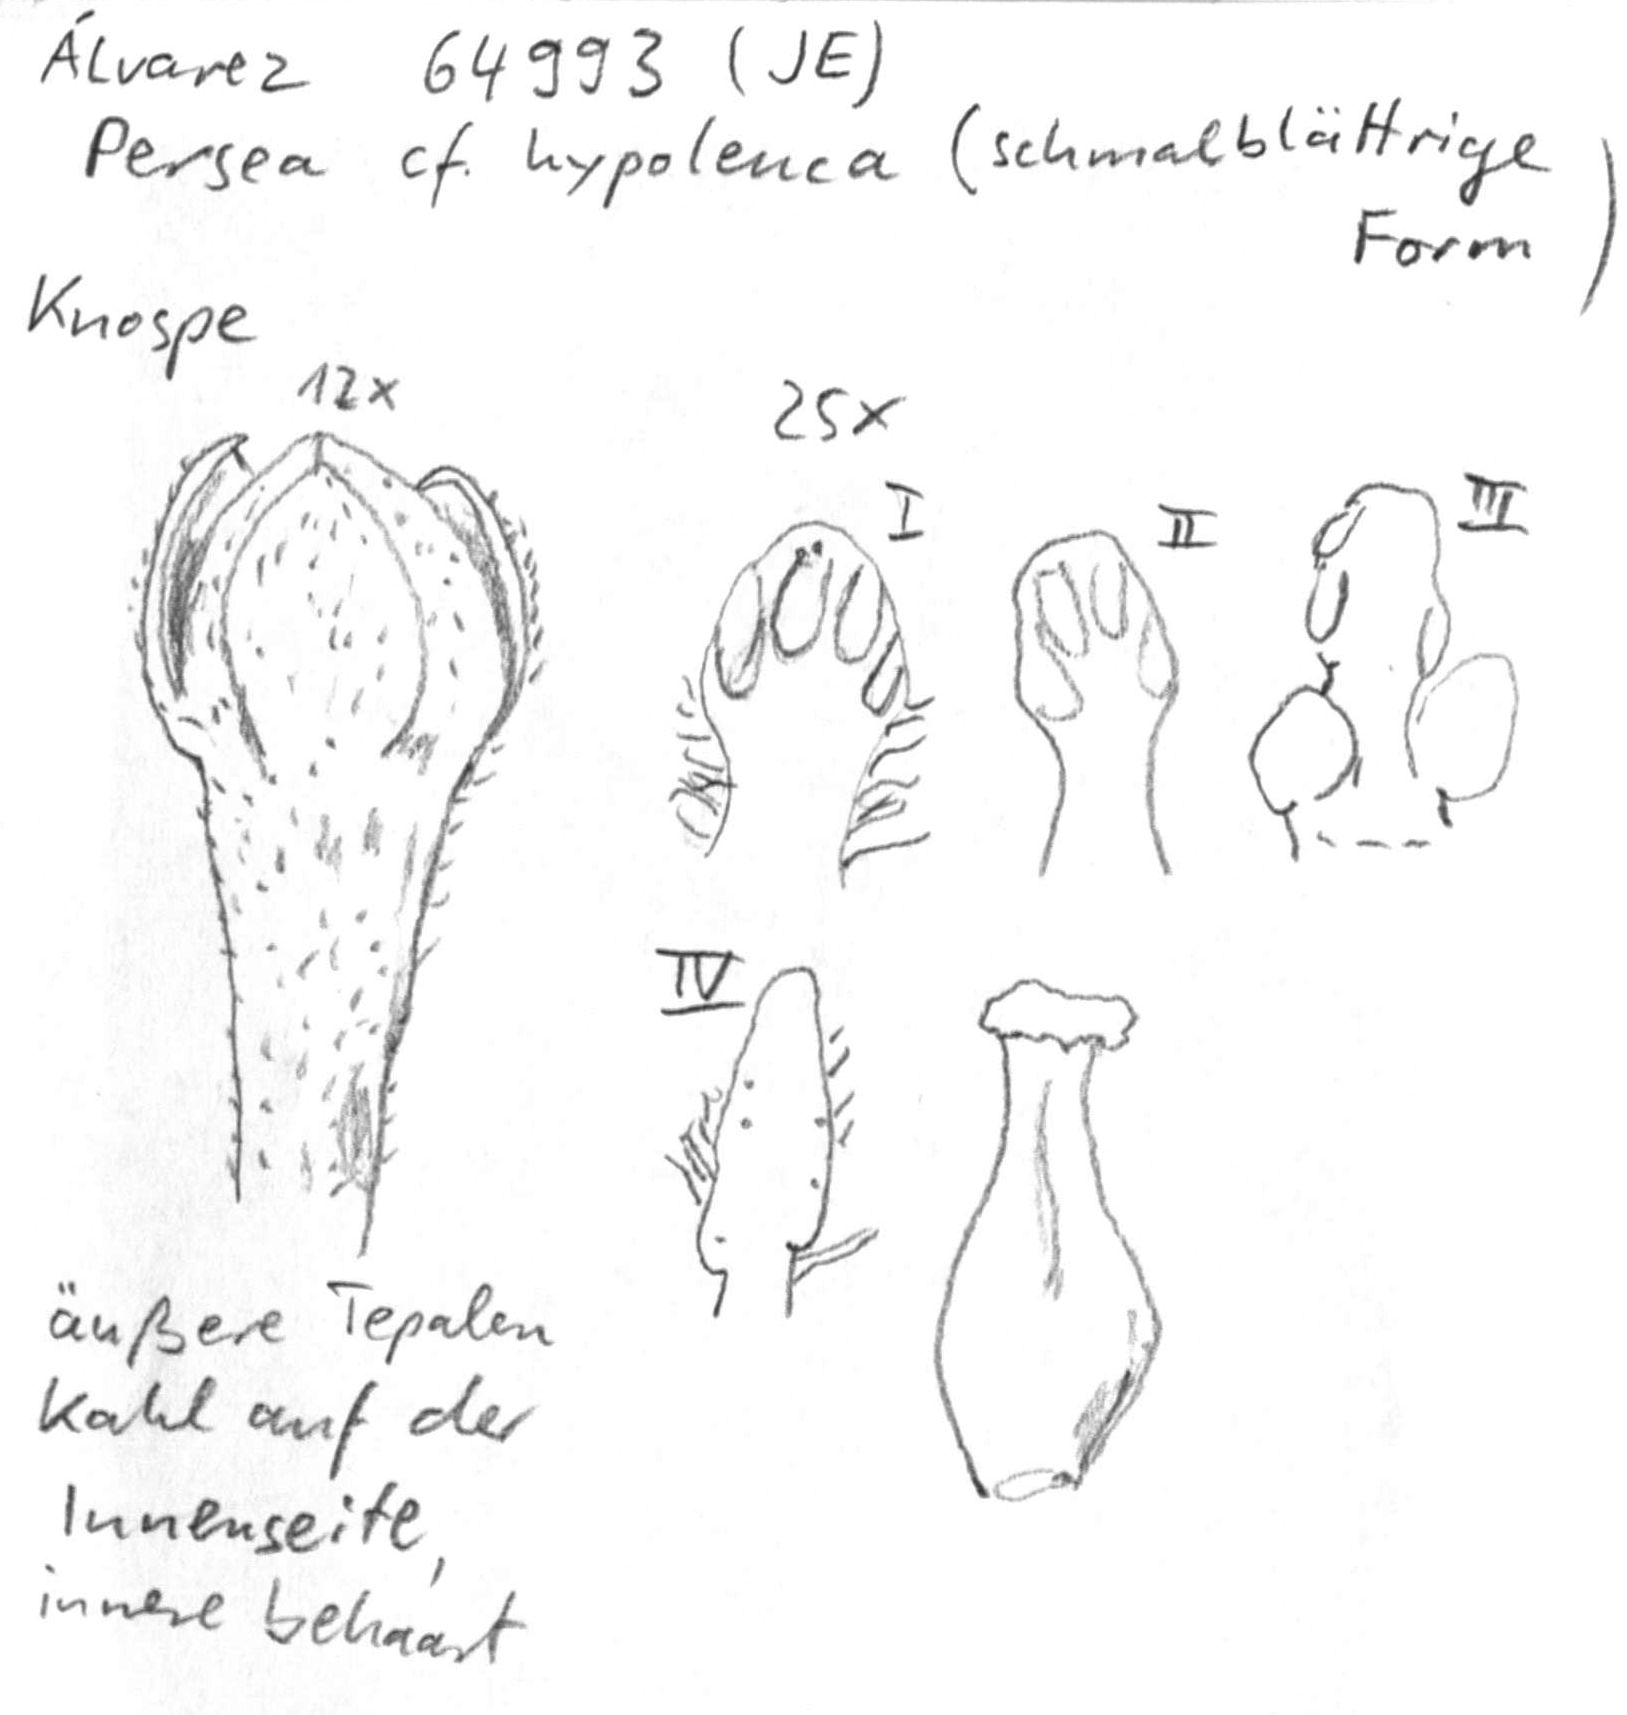 Álvarez 64993 (JE)
Persea cf. hypoleuca (schmalblättrige
Form)
Knospe
12x
25x
I
II
III
IV
äußere Tepalen
kahl auf der
Innenseite,
innere behaart